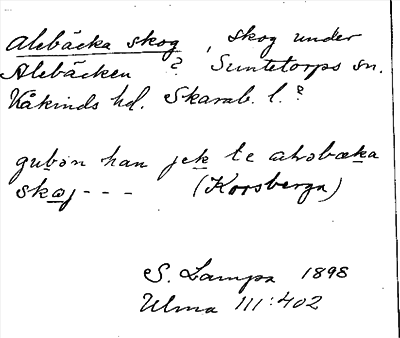 Alebäcka skog, skog under
Alebäcken ? Suntetorps sn.
Kåkinds hd. Skarab. l.?
gubøn han jek te alrsbæka
skoj - - - (Korsberga)
S. Lampa 1898
Ulma 111:402